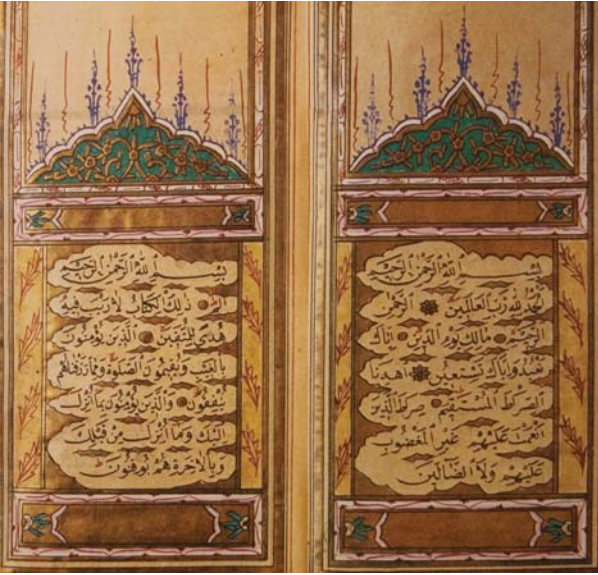 بسم الله الرحمن الرحيم
الحمد لله رب العالمين الرحمن
الرحيم مالك يوم الدين اياك
نعبد واياك نستعين اهدنا
الصراط المستقيم صراط الذين
انعمت عليهم غير المغضوب
عليهم ولا الضالين
بسم الله الرحمن الرحيم
الم ذلك الكتاب لا ريب فيه
هدى للمتقين الذين يؤمنون
بالغيب ويقيمون الصلوة ومما رزقناهم
ينفقون والذين يؤمنون بما انزل
اليك وما انزل من قبلك
وبالاخرة هم يوقنون